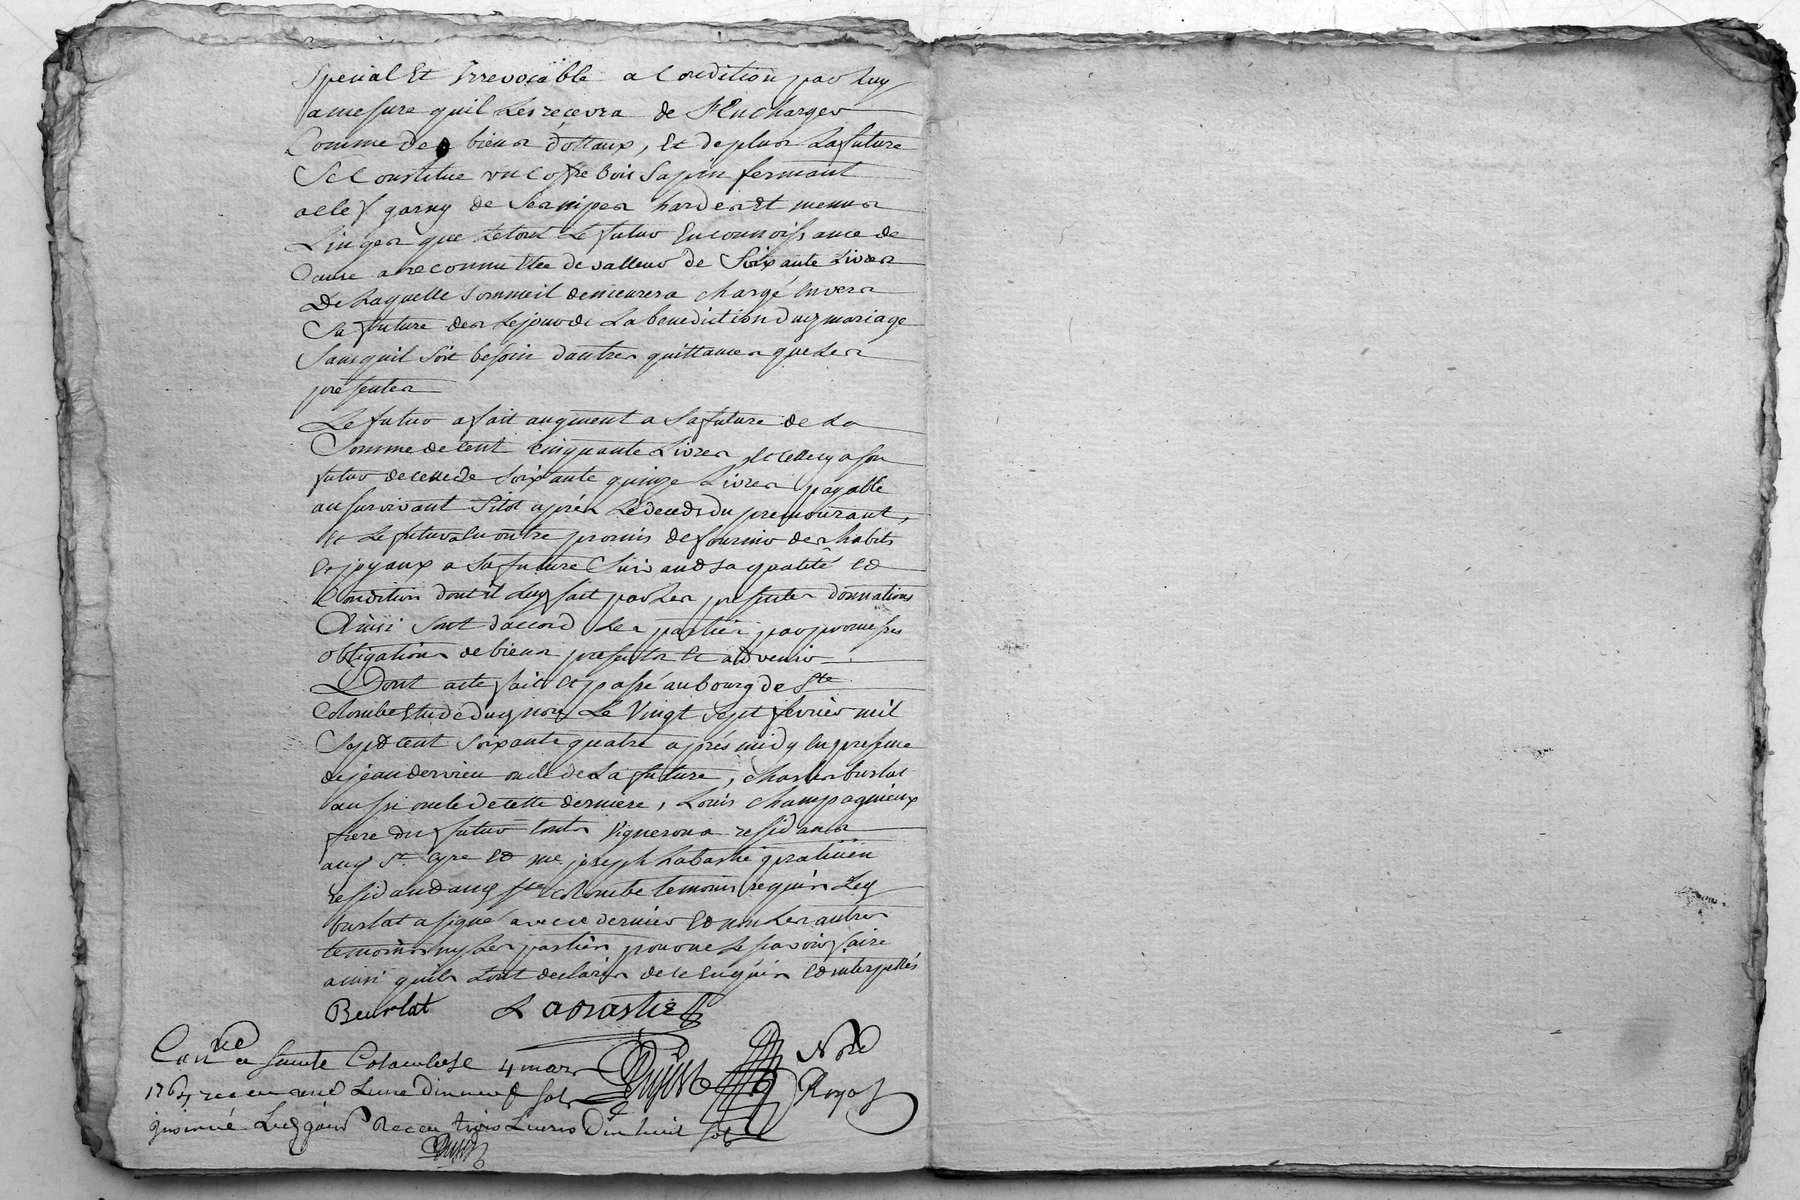 special et irrevocable a condition par luy
a mesure quil les recevra de s'en charger
comme de biens dottaux, et de plus la future
se constitue un coffre bois sapin fermant
a clef garny de ses nipes hardes et menus
linges que le tout le futur en connoissance de
cause a reconnu etre de valleur de soixante livres
de laquelle somme il demeurera chargé envers
sa future des le jour de la benediction du mariage
sans quil soit besoin dautres quittances que les
presentes
Le futur a fait augment a sa future de la
somme de cent cinquante livres et celle cy a son
futur de celle de soixante quinze livres payable
au survivant sitot aprés le deceds du premourant,
et le futur a en outre promis de fournir des habits
et joyaux a sa future suivand sa qualité et
condition dont il luy fait par les presentes donnations
Ainsi sont d'accord les parties par promesses
obligations de biens presents et advenir
Dont acte fait et passé au bourg de Ste
Colombe etude du nore le vingt sept fevrier mil
sept cent soixante quatre aprés midy en presence
de jean dervieu oncle de la future, charles burlat
aussi oncle de cette derniere, Louis champagnieux
frere du futur touts vignerons residants
aud St. Cyre et me joseph Labastié praticien
residand aud ste colombe temoins requis led
burlat a signé avec ce dernier et non les autres
temoins ny les parties pour ne le sçavoir faire
ainsi quils l'ont declarés de ce enquis et interpellés
Beurlat Labastié
Con.lé a Sainte Colombe 4 mars Dujast Nore
1764 receu une livre dix neuf sols Royal
insinué led jour receu trois livres dix huit sols
Dujast